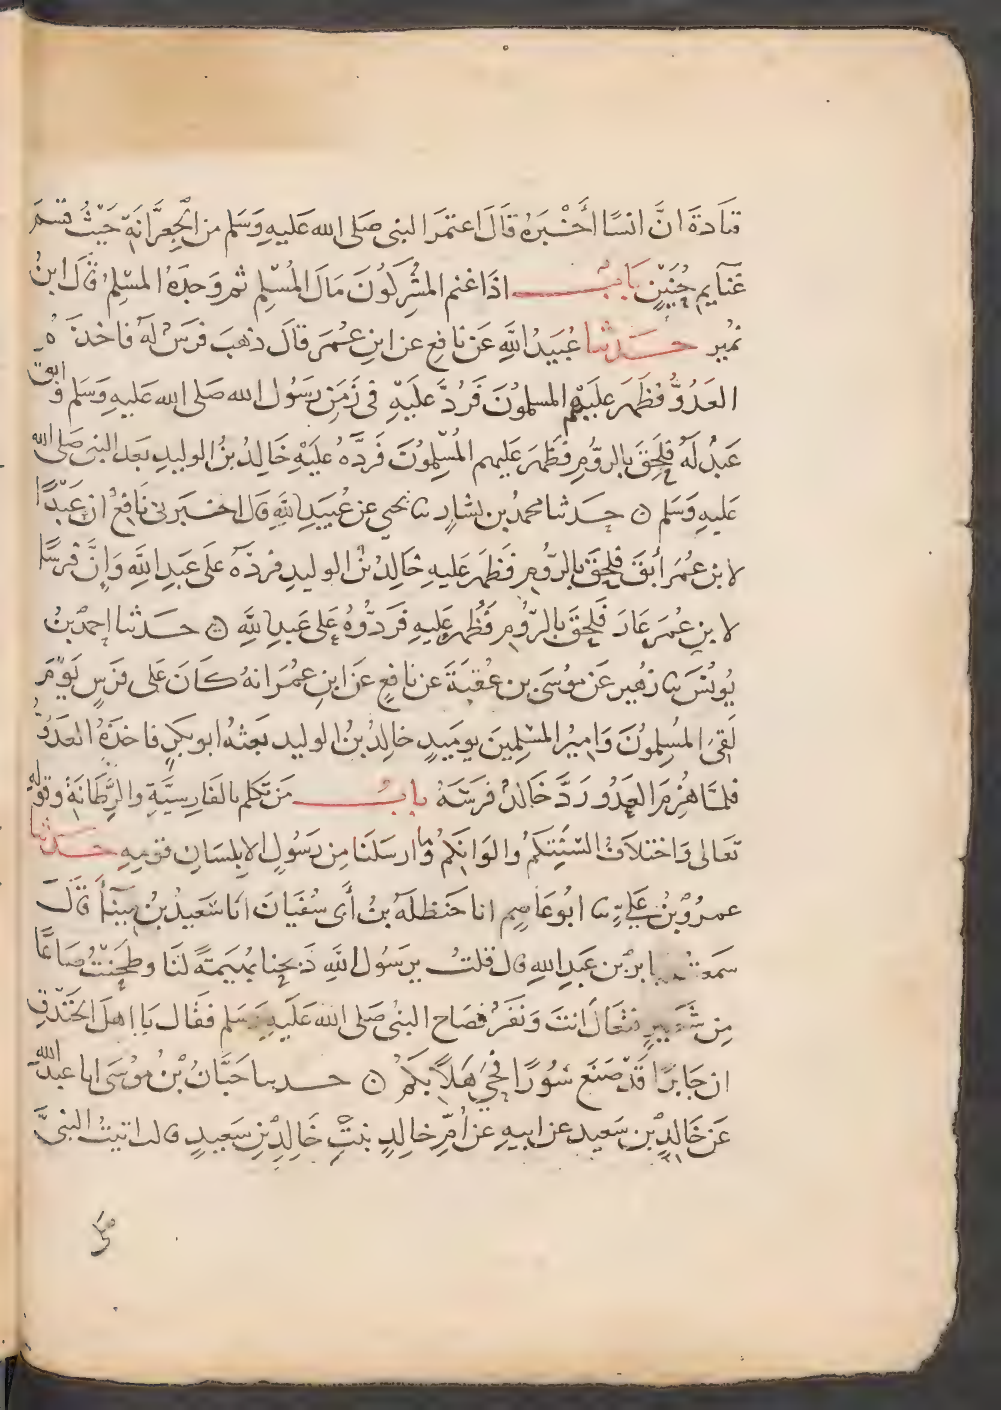 قتادة انَّ انسًا أَخْبَرَهُ قَالَ اعتمَرَ النبى صَلى الله عَليهِ وَسَلم من الجِعِرَّانَةِ حَيْثُ قسَمَ
غنَايِم حُنَيْنٍ بَابُ اذَا غنم المُشْرِكُونَ مَالَ المُسْلِمِ ثم وَجدَهُ المسْلِمُ قَالَ ابنُ
نمُير حَدثنا عُبَيدُ اللَّهِ عَن نافِعٍ عن ابنِ عمُمَرَ قالَ ذهبَ فرَسٌ لهُ فاخذَهُ
العَدُوُّ فَظَهَرَ عَليْهِم المسلمُونَ فَرُدَّ عَليْهِ فى زَمَنِ رَسُول الله صَلى الله عَليهِ وَسَلم وابق
عَبْدٌ لَهُ فلَحِقَ بالروُّمِ فظَهَرَ عَليهم المُسْلِمُونَ فَردَّهُ عَليْهِ خَالِدُ بْنُ الوليدِ بَعد النبى صَلى الله
عَليهِ وَسَلم ۞ حَدثنا محمدُ بن بَشارٍ نا يحيى عن عُبَيدِ اللَّهِ قَالَ اخبَرنى نَافِعٌ ان عَبْدًا
لابن عُمَر أبَقَ فلَحِقَ بالروُّمِ فَظَهرَ عَليهِ خَالِدُ بْنُ الوليدِ فردَّهُ عَلَى عَبدِ اللَّهِ وَإنَّ فرَسًا
لابنِ عُمَرَ عَارَ فَلَحِقَ بالرُّومِ فَظَهر عَليهِ فَردُّوهُ عَلى عَبدِ اللَّهِ ۞ حَدثنا احمدُ بنُ
يُونُسَ نا زهُير عَن مُوسَى بن عُقبَةَ عن نافعٍ عَن ابنِ عمُرَ انهُ كانَ عَلى فرَسٍ يَوْمَ
لَقِىَ المُسلِمُونَ وَامِيرُ المسْلِمِينَ يوميذٍ خالِدُ بنُ الوليد بَعثهُ ابو بكرٍ فاخذَهُ العَدُوُّ
فلمَّا هُزِمَ العَدُو رَدَّ خَالدٌ فرَسَهُ بابُ مَن تكلم بالفَارِسِيَّةِ والرِّطَانَةِ وقولهِ
تعَالى وَاختلافُ السِنَتِكُم والوَانكُم وَمَا ارسَلنَا مِن رَسُولٍ الا بلسَانِ قومِهِ حَدثنا
عمروُ بْنُ عَلىٍّ نا ابُو عَاصِم انا حَنظلَةُ بنُ أبى سُفْيَانَ انَا سَعِيدُ بنُ مِينَآ قَالَ
سَمعتُ جابرَ بن عَبدِ اللهِ قال قلتُ يرَسُول اللَّهِ ذبَحنا بُهَيمَةً لنَا وطحَنْتُ صَاعًا
مِن شَعِيرٍ فتعَالَ انتَ وَنفَرٌ فصَاح النبىُ صَلى الله عَلَيهِ وَسَلم فقَال يَا اهلَ الخَندَقِ
ان جَابِرًا قدْ صَنعَ سُورًا فحَىَّ هَلاً بكُم ۞ حدثنا حَبَّانُ بْنُ مُوسَى انا عبدُ الله
عَن خَالِدِ بن سَعِيد عن ابيهِ عن أُمِّ خالِدٍ بنتِ خَالِدِ بن سَعِيدٍ قالت اتيتُ النبىَّ
صَلى